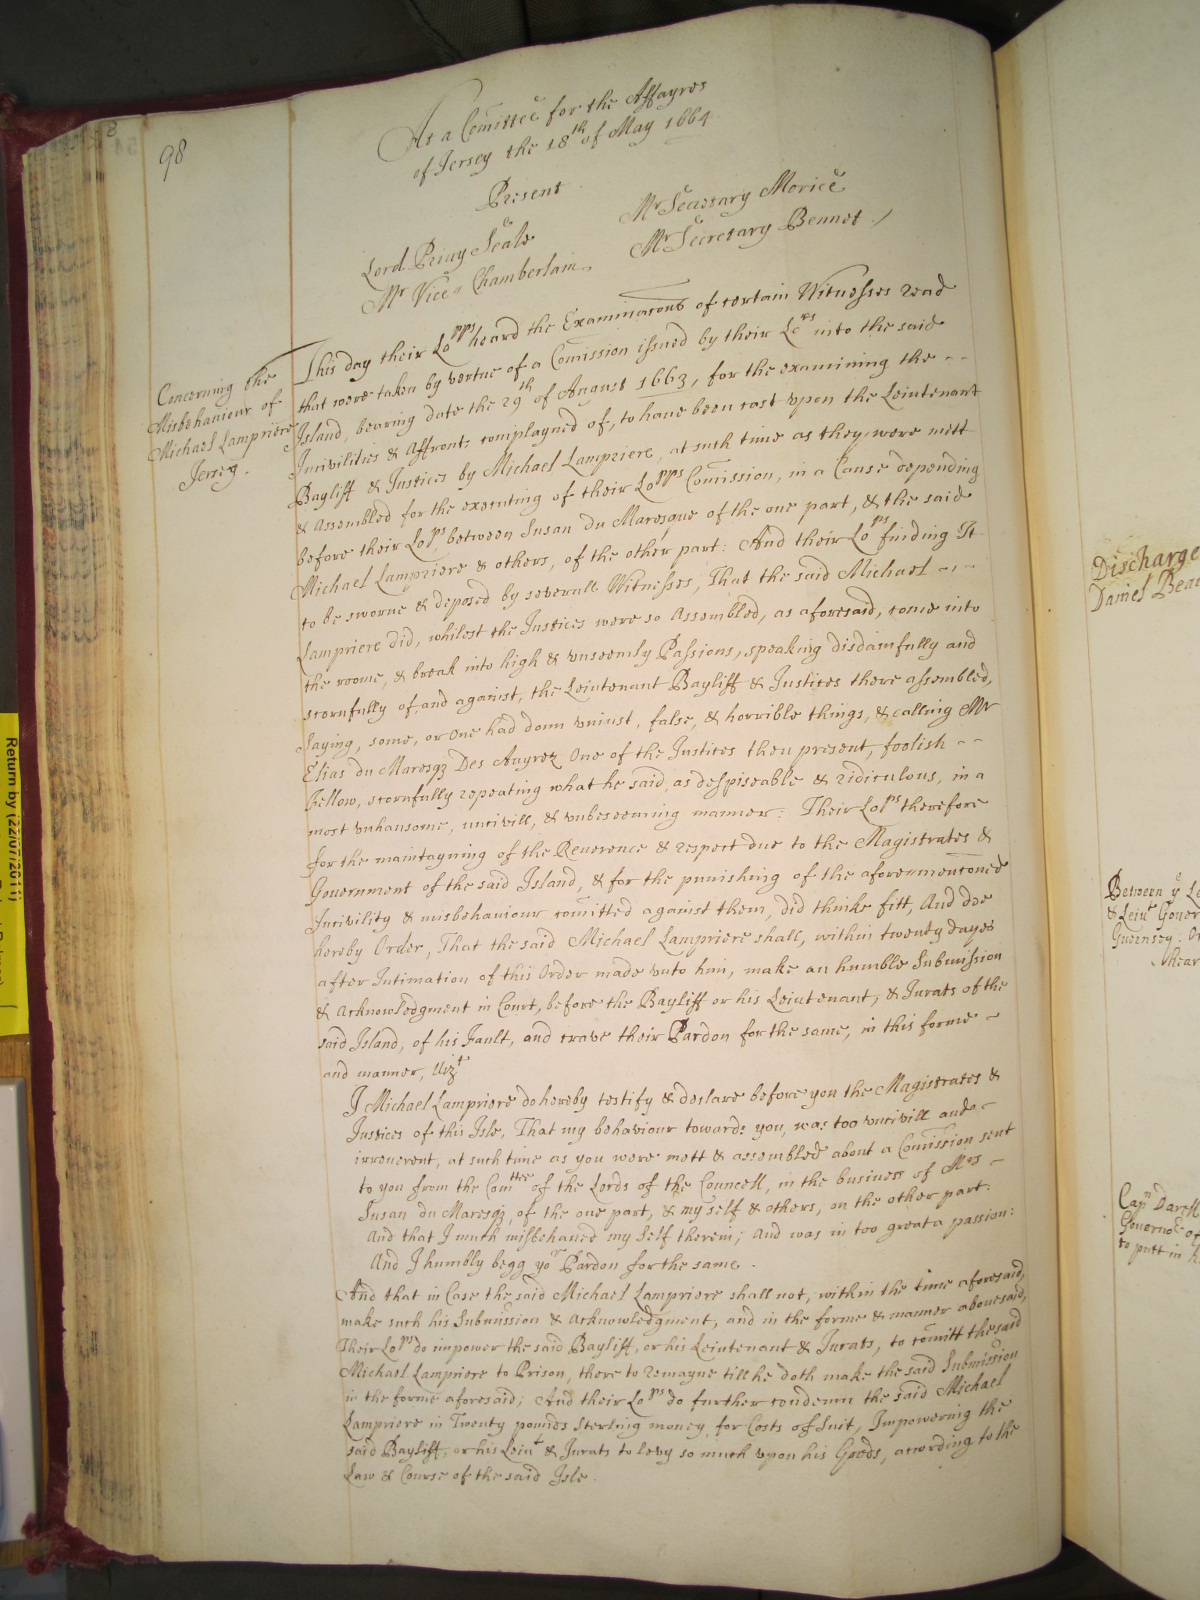 98
At a Comittee for the Affayres
of Jersey the 18th of May 1664
Present
Lord Privy Seale
Mr Vice Chamberlain
Mr Secretary Morice
Mr Secretary Bennet
Concerning the
Misbehaviour of
Michael Lampriere
Jersey.
This day their Lopps heard the Examinacons of certain Witnesses read
that were taken by vertue of a Comission issued by their Lops into the said
Island, bearing date the 29th of August 1663, for the examining the
Incivilities & Affronts complayned of, to have been cast upon the Leiutenant
Bayliff & Justices by Michael Lampriere, at such time as they were mett
& Assembled for the executing of their Lopps Comission, in a Cause depending
before their Lops between Susan du Maresque of the one part, & the said
Michael Lampriere & others, of the other part: And their Lops finding It
to be sworne & deposed by severall Witnesses, That the said Michael
Lampriere did, whilest the Justices were so Assembled, as aforesaid, come into
the roome, & break into high & unseemly Passions, speaking disdainfully and
scornfully of, and against, the Leiutenant Bayliff & Justices there assembled,
Saying, some, or one had donn uniust, false, & horrible things, & calling Mr
Elias du Maresqz Des Augrez One of the Justices then present, foolish
Fellow, scornfully repeating what he said, as despiseable & ridiculous, in a
most unhansome, uncivill, & unbeseeming manner: Their Lops therefore
for the maintayning of the Reverence & respect due to the Magistrates &
Government of the said Island, & for the punishing of the aforementioned
Incivility & misbehaviour comitted against them, did thinke fitt, And doe
hereby Order, That the said Michael Lampriere shall, within twenty dayes
after Intimation of this Order made unto him, make an humble Submission
& Acknowledgment in Court, before the Bayliff or his Leiutenant, & Jurats of the
said Island, of his Fault, and crave their Pardon for the same, in this forme
and manner, Vizt
I Michael Lampriere do hereby testify & declare before you the Magistrates &
Justices of this Isle, That my behaviour towards you, was too uncivill and
irreverent, at such time as you were mett & assembled about a Comission sent
to you from the Comttee of the Lords of the Councell, in the business of Mrs
Susan du Maresqz, of the one part, & my self & others, on the other part:
And that I much misbehaved my Self therein; And was in too great a passion:
And I humbly begg yor Pardon for the same.
And that in Case the said Michael Lampriere shall not, within the time aforesaid,
make such his Submission & Acknowledgment, and in the forme & manner abovesaid,
Their Lops do impower the said Bayliff, or his Leiutenant & Jurats, to comitt the said
Michael Lampriere to Prison, there to remayne till he doth make the said Submission
in the forme aforesaid; And their Lops do further condemn the said Michael
Lampriere in Twenty pounds Sterling money for Costs of Suit, Impowering the
said Bayliff, or his Leiut & Jurats to levy so much upon his Goods, according to the
Law & Course of the said Isle.
Return by (22/07/2011)
Discharge
Daniel
Between ye
& Leiut Gover
Guernsey. Or
hear
Capn Darell
Governor of
to putt in